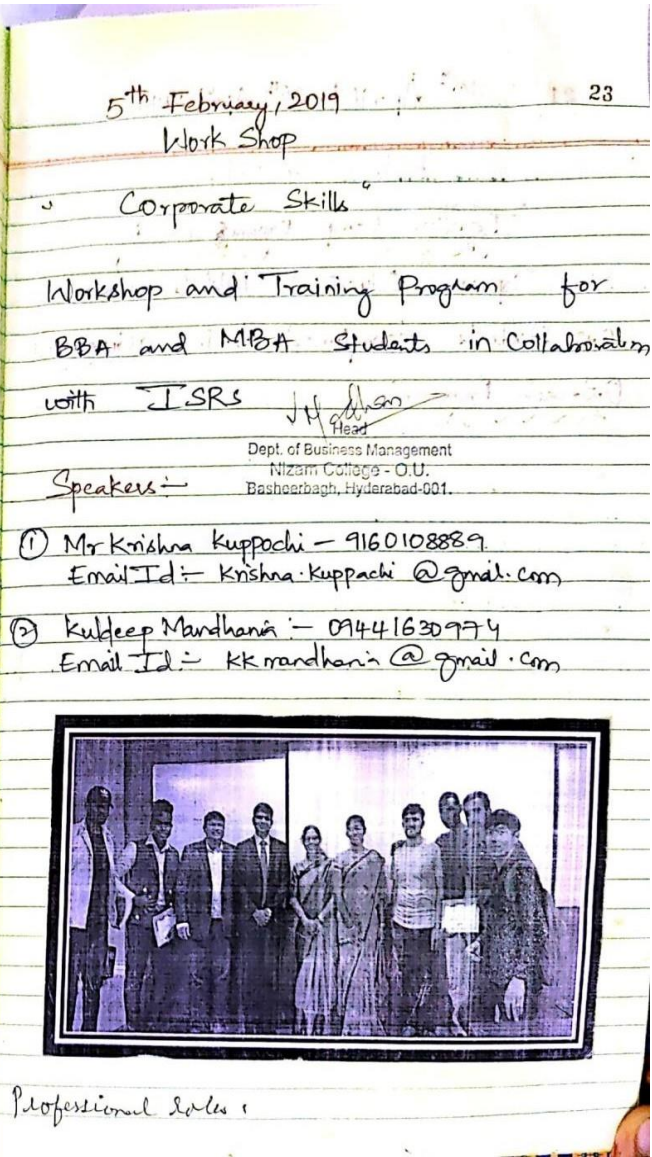 23
5th February, 2019
Work Shop
" Corporate Skills "
Workshop and Training Program for
BBA and MBA Students in Collaboration
with ISRS
Head
Dept. of Business Management
Nizam College - O.U.
Basheerbagh, Hyderabad-001.
Speakers :-
① Mr Krishna Kuppochi - 9160108889
Email Id :- Krishna.Kuppachi @gmail.com
② Kuldeep Mandhania :- 09441630974
Email Id :- KKmandhania @ gmail.com
Professional